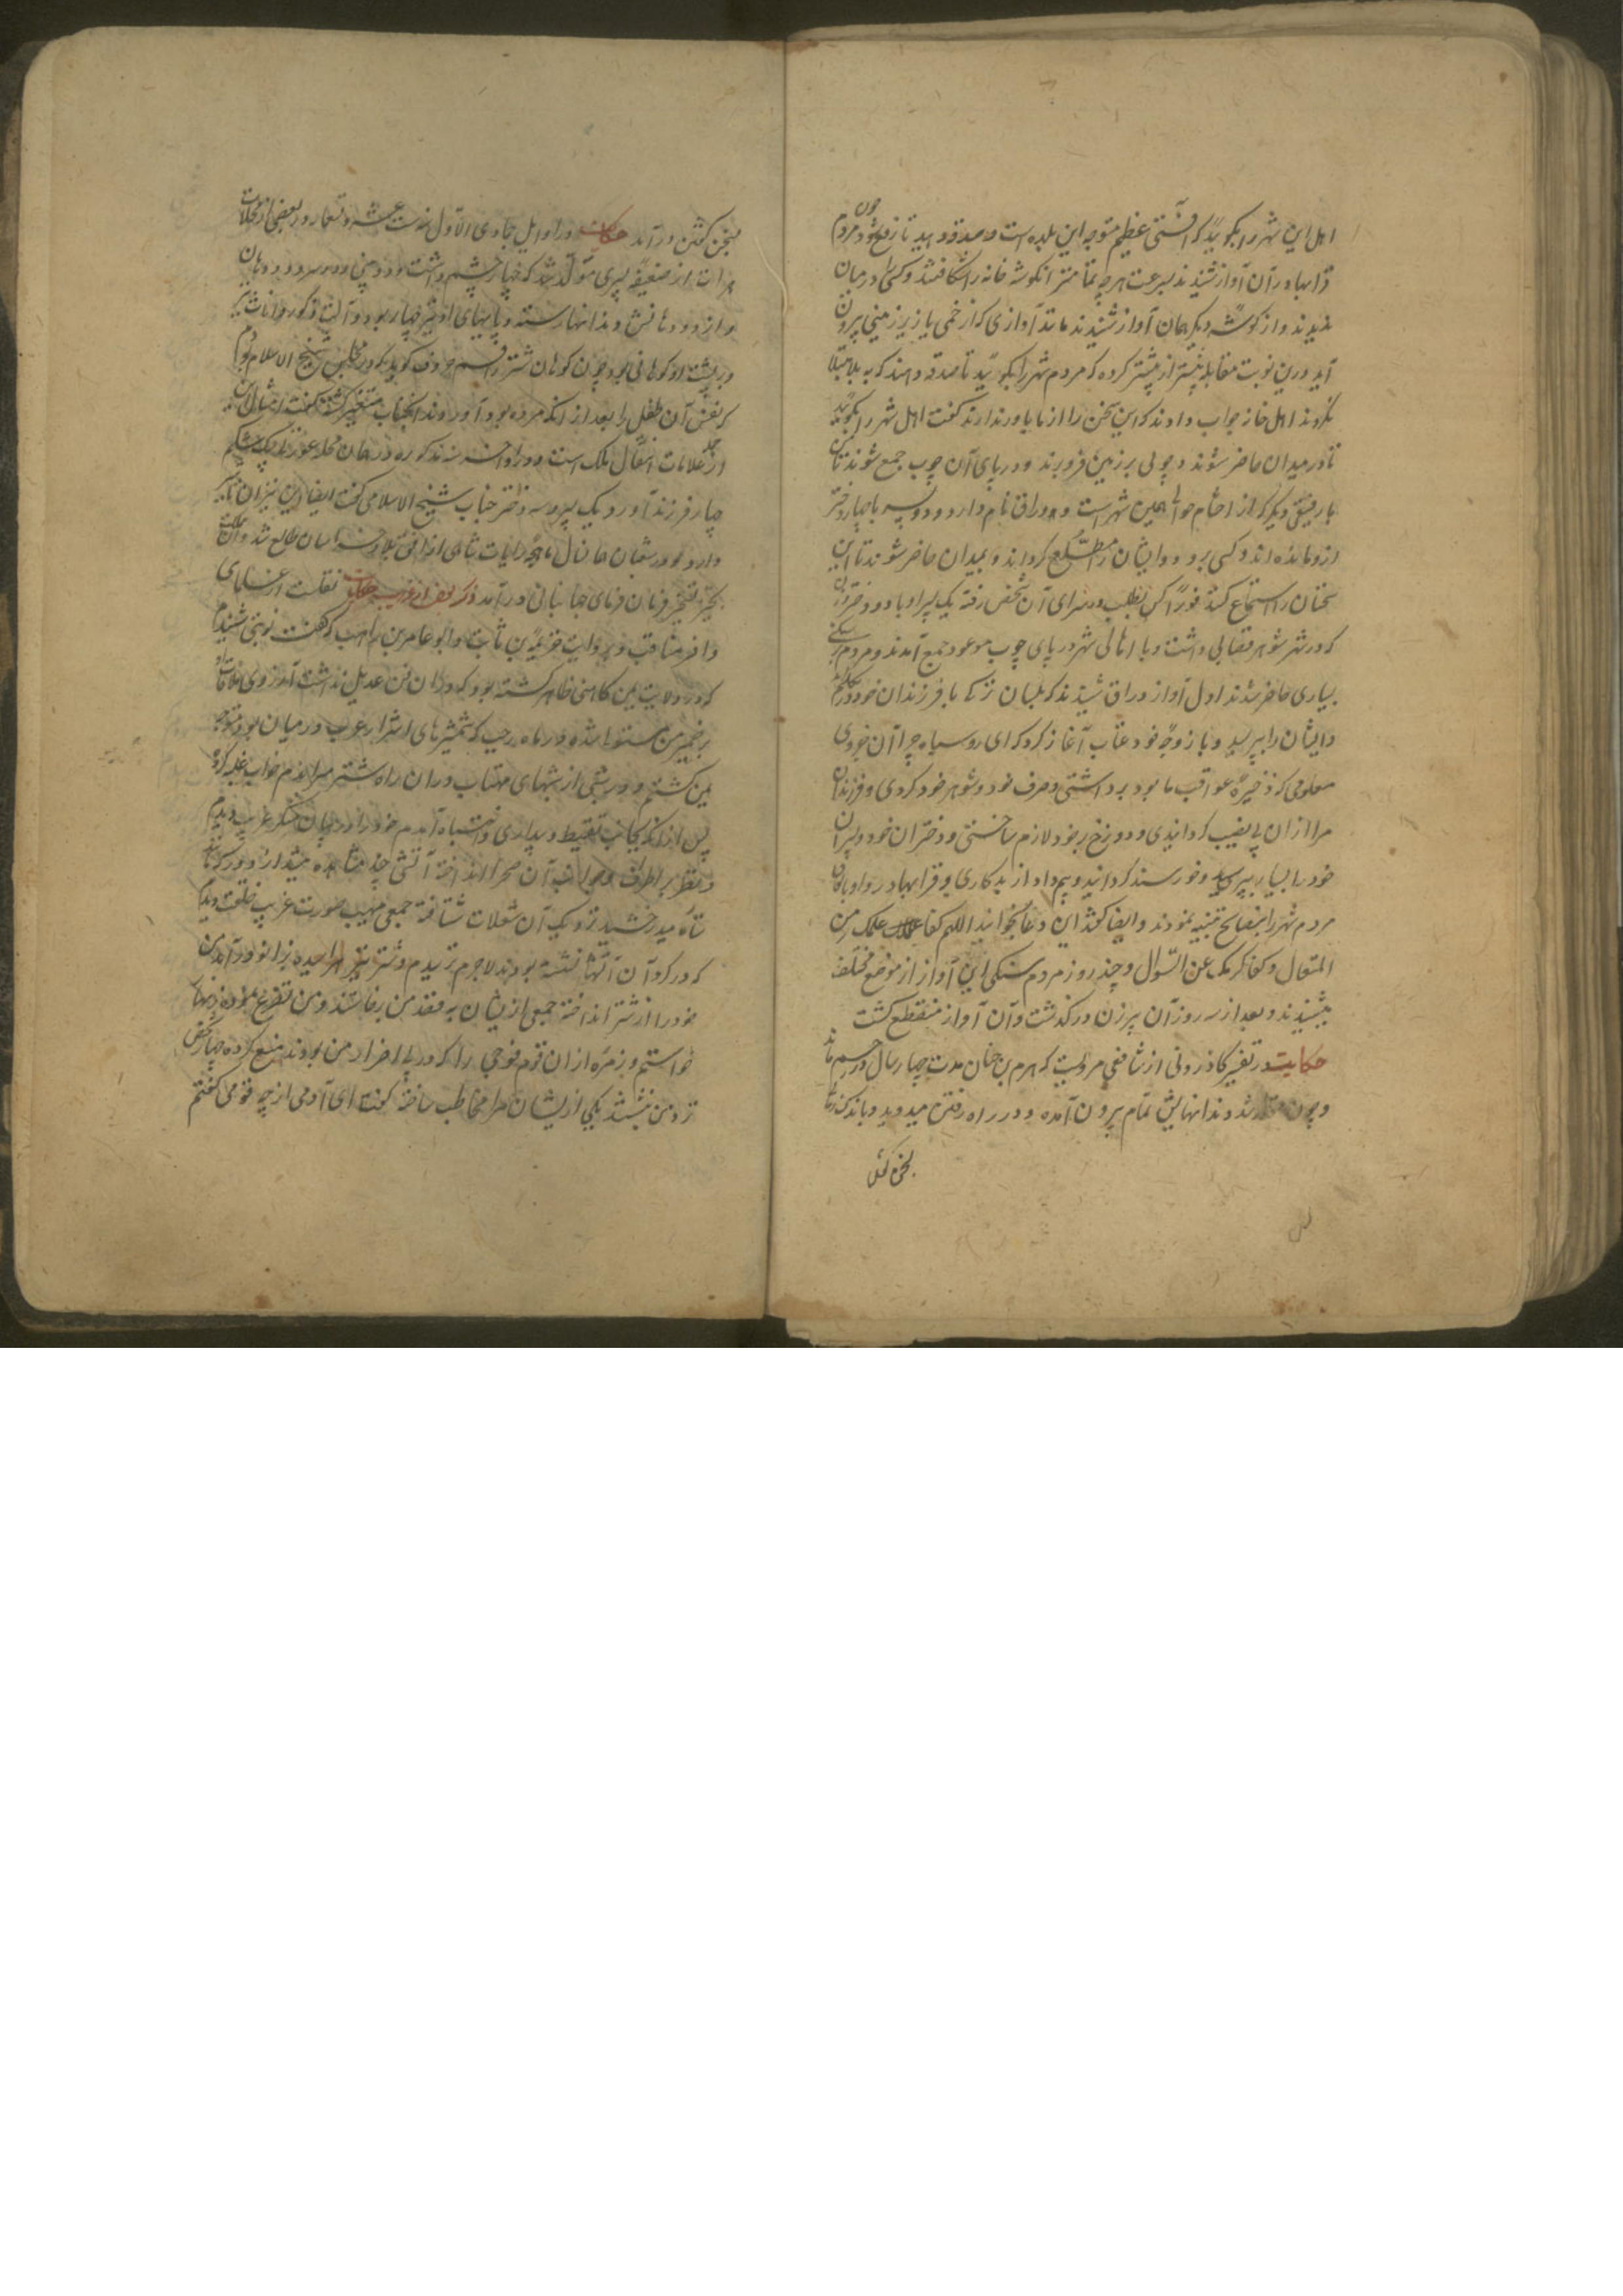 اهل این شهر را بگویید که آفتی عظیم متوجه این بلده است و صدقه دهید تا رفع شود چون مردم
قرابها در آن آواز شنیدند بسرعت هرچه تمامتر آن گوشه خانه را شکافتند و کسی در میان
ندیدند و از گوشه دیگر همان آواز شنیدند مانند آوازی که از خمی یا زیرزمینی بیرون
آید درین نوبت مقابله بیشتر از پیشتر کرده که مردم شهر را بگویید تا صدقه دهند که به بلا مبتلا
نگردند اهل خانه جواب دادند که این سخن را از ما باور ندارند گفت اهل شهر را بگویید
تا در میدان حاضر شوند و چوبی بر زمین فرو برند و در پای آن چوب جمع شوند تا من
با رفیقی دیگر که از احشام حوالی همین شهر است و وراق نام دارد و دو پسر با چهار دختر
ازو مانده اند و کسی برود و ایشان را مطلع گرداند و بمیدان حاضر شوند تا این
سخنان را استماع کنند فورا کس بطلب و سرای آن شخص رفته یک پسر او با دو دختر
که در شهر شوهر قصابی داشت و با اهالی شهر در پای چوب موعود جمع آمدند و مردم
بسیاری حاضر شدند اول آواز وراق شنیدند که بلسان ترکی با فرزندان خود تکلم کرد
و ایشان را بپرسید و با زوجه خود عتاب آغاز کرد که ای روسیاه چرا آن خروی
معلومی که ذخیره عواقب ما بود برداشتی و صرف خود و شوهر خود کردی و فرزندان
مرا از آن بی نصیب گردانیدی و دوزخ بر خود لازم ساختی و دختران خود و پسران
خود را بسیار بپرسید و خورسند گردانید و بیم داد از بدکاری و قرابها در
مردم شهر را بنصایح تنبیه نمودند و ایضا گفتند این دعا بخوانید اللهم کفا علمک من
المقال و کفا کرمک عن السؤال و چند روز مردم سنگی این آواز از موضع مختلف
میشنیدند و بعد از سه روز آن پیرزن درگذشت و آن آواز منقطع گشت
حکایت در تفسیر کازرونی از شافعی مرویست که هرم بن حیان مدت چهار سال در رحم ماند
و چون متولد شد دندانهایش تمام بیرون آمده و در راه رفتن میدوید و باندک
بسخن گفتن
بسخن گفتن درآمد حکایت در اوایل جمادی الاول سنه ست عشر و تسعمایه در بعضی از محلات
هرات از ضعیفه پسری متولد شد که چهار چشم داشت و دو بینی و دو سر و دو دهان
و از دو دهانش دندانها رسته و پاهای او نیز چهار بود و آلت ذکور و اناث
و بر پشت او کوهانی بود چون کوهان شتر راقم حروف گوید که در مجلس شیخ الاسلام بودم
که نعش آن طفل را بعد از آنکه مرده بود آوردند آنجناب متغیر گشته گفت امثال این
از علامات انتقال ملک است و در اواخر سنه مذکوره در همان محله عورتی بیک شکم
چهار فرزند آورد یک پسر و سه دختر جناب شیخ الاسلامی گفت ایضا این نیز آن تاثیر
دارد و در شعبان همانسال ماهچه رایات شاهی از افق بلاد خراسان طالع شد و آن مملکت
بحیز تسخیر فرمان فرمای جهانبانی درآمد ذکر بعض از غرایب حکایت نقلست از علمای
وافر مناقب و بروایت خزیمه بن ثابت و ابو عامر بن راهب که گفت نوبتی شنیدم
که در ولایت یمن کاهنی ظاهر گشته بود که در آن فن عدیل نداشت آرزوی ملاقات او
بر ضمیر من مستولی شد و در ماه رجب که شمشیرهای اشرار عرب در میان بود متوجه
یمن گشتم و در شبی از شبهای مهتاب در آن راه شتر میراندم خواب غلبه کرد
پس از آنکه بجانب تیقظ و بیداری و انتباه آمدم خود را در بیابان منکر غریب دیدم
و نظر بر اطراف و جوانب آن صحرا انداخته آتشی چند مشاهده میشد از دور که مانند
ستاره میدرخشید نزدیک آن شعلات شتافته جمعی مهیب صورت غریب خلقت دیدم
که در گرد آن آتشها نشسته بودند لاجرم ترسیدم و شتر نیز هراسیده بزانو درآمد من
خود را از شتر انداخته جمعی از ایشان به قصد من برخاستند و من تضرع نموده زینهار
خواستم و زمره از آن قوم فوجی را که در پی اضرار من بودند منع کرده چهار کس
نزد من نشستند یکی از ایشان مرا مخاطب ساخته گفت ای آدمی از چه قومی گفتم